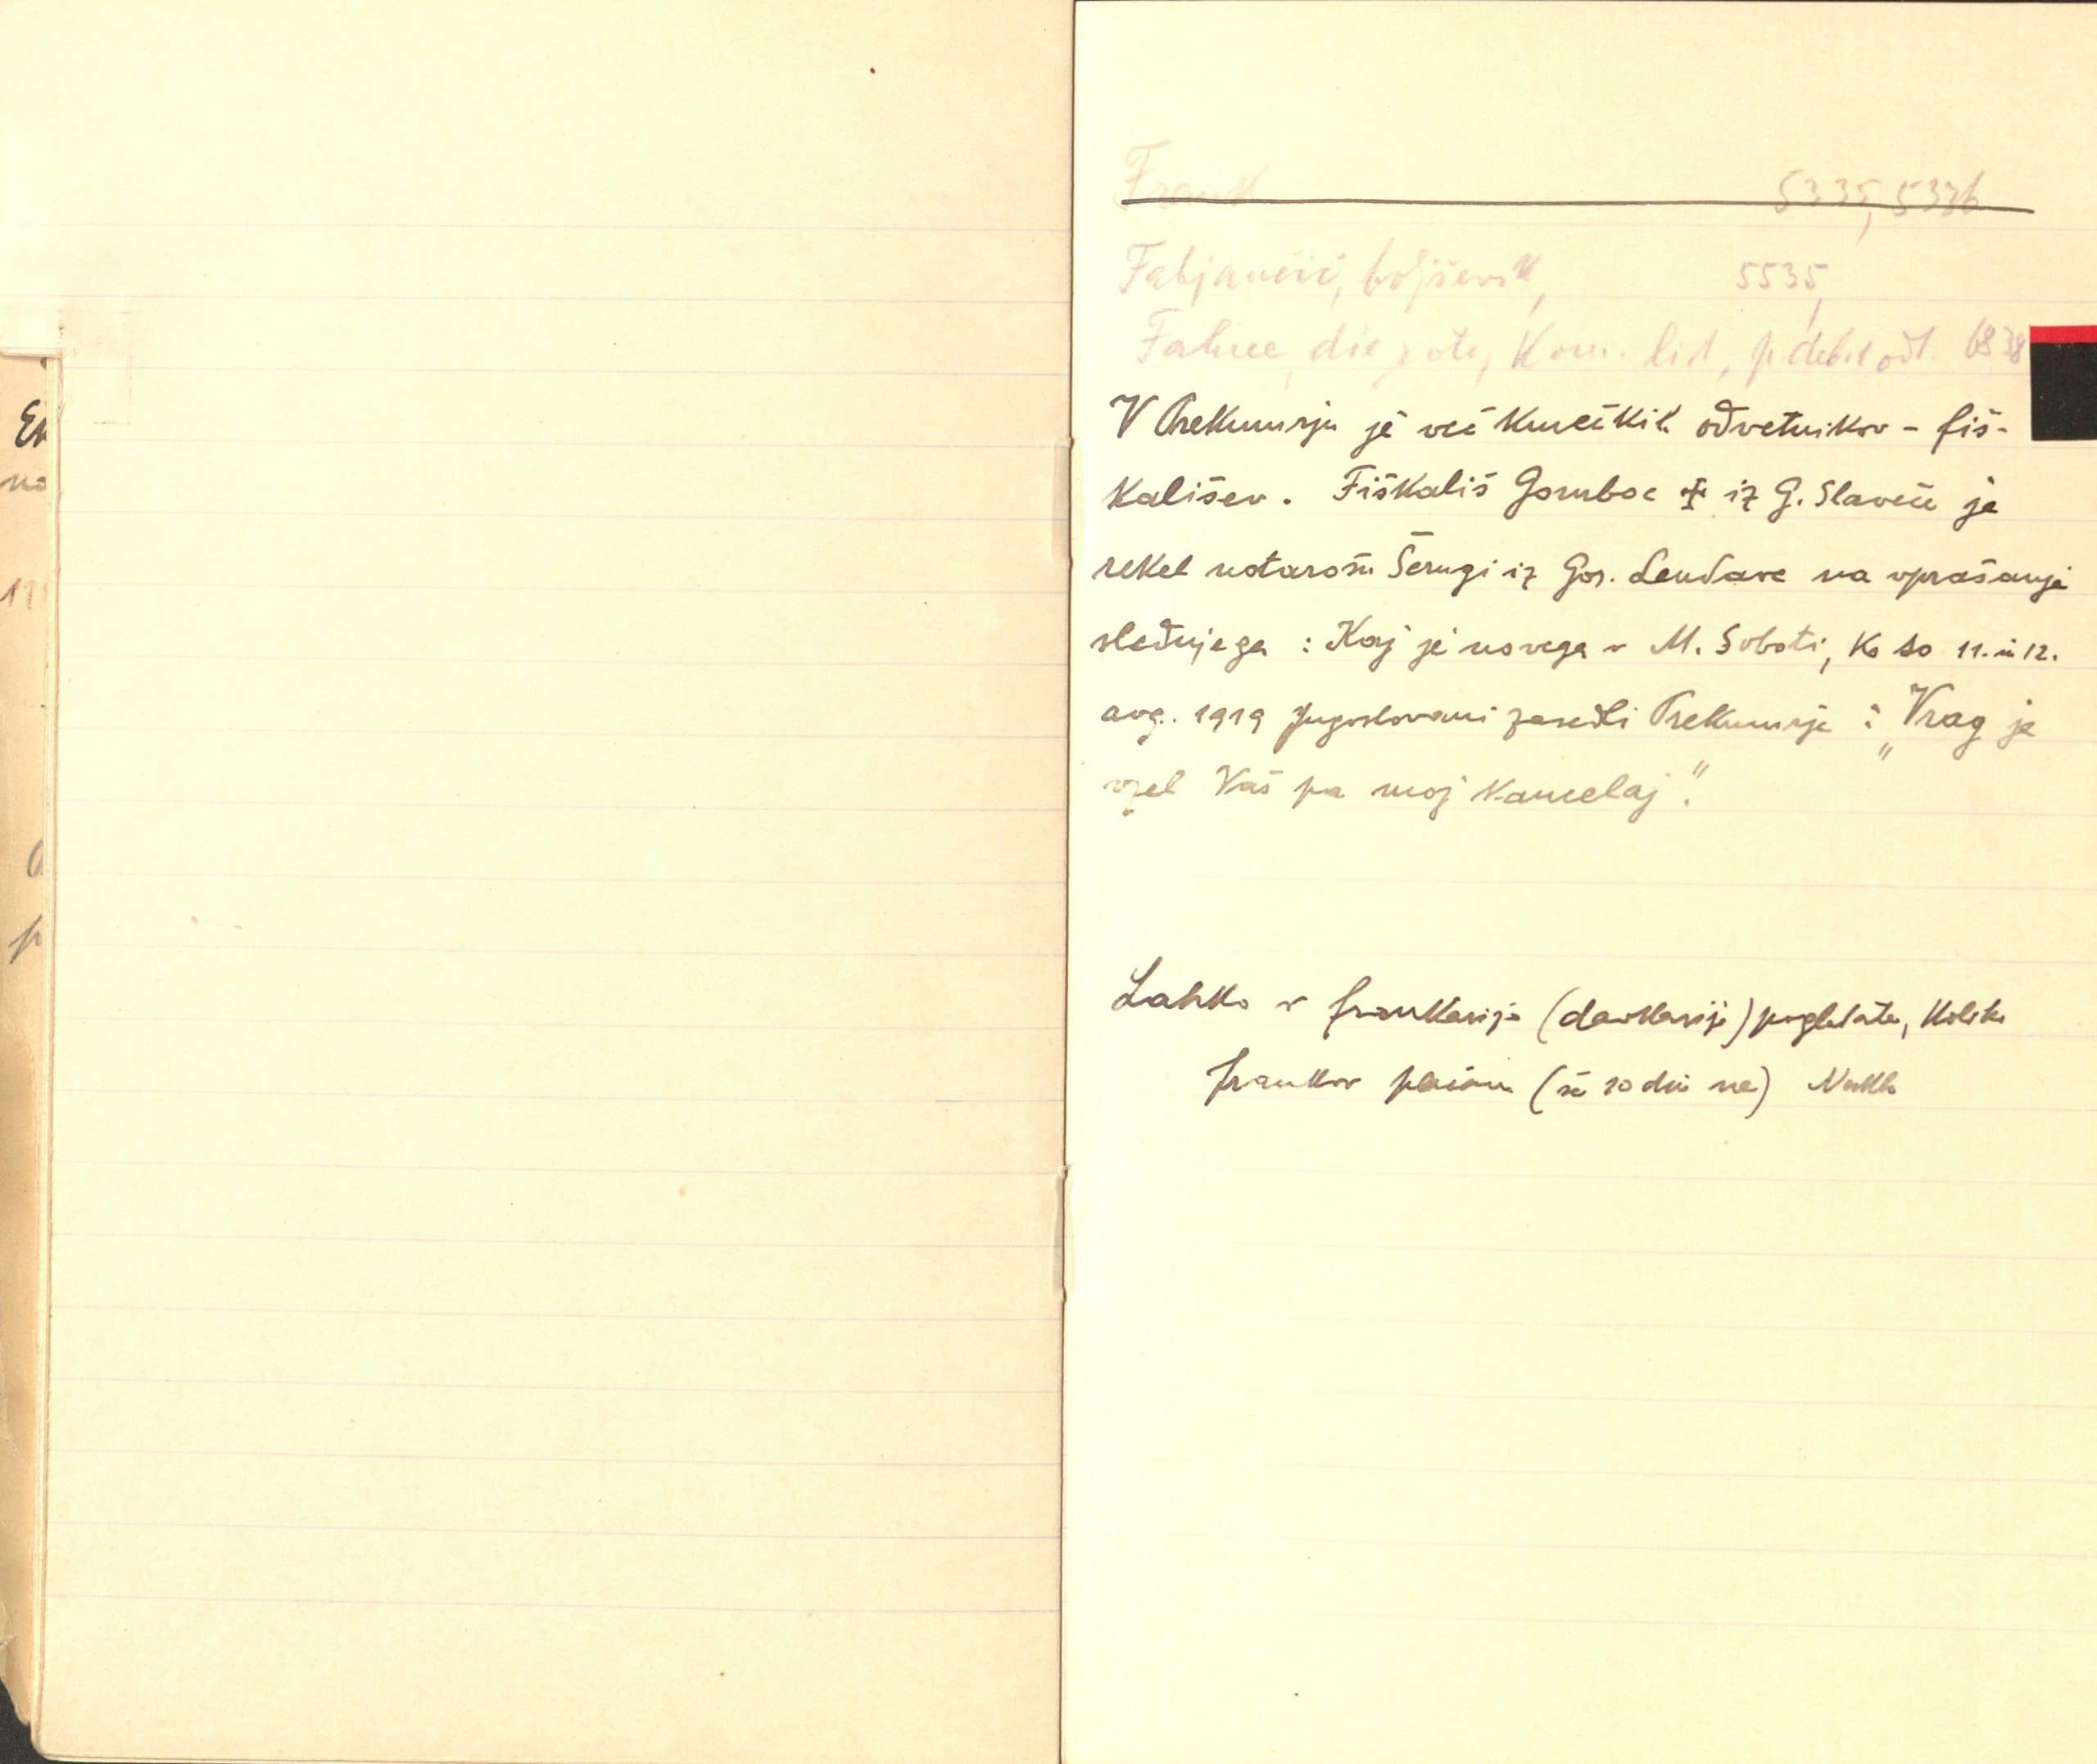 Frank 5335, 5336
Fabjančič, boljševik, 5535,
Fahne, die rote, kom. list, p. debit odt. 6838
V Prekmurju je več kmečkih odvetnikov - fiš-
kališev. Fiškališ Gomboc iz G. Slaveče je
rekel notarošu Šerugi iz Gor. Lendave na vprašanje
slednjega : Kaj je novega v M. Soboti, ko so 11. in 12.
avg. 1919 Jugoslovani zasedli Prekmurje : „Vrag je
vzel Vaš pa moj kancelaj".
Lahko v frankarijo (davkarijo) pogledate, koliko
frankov plačam (še 10 din ne)
En